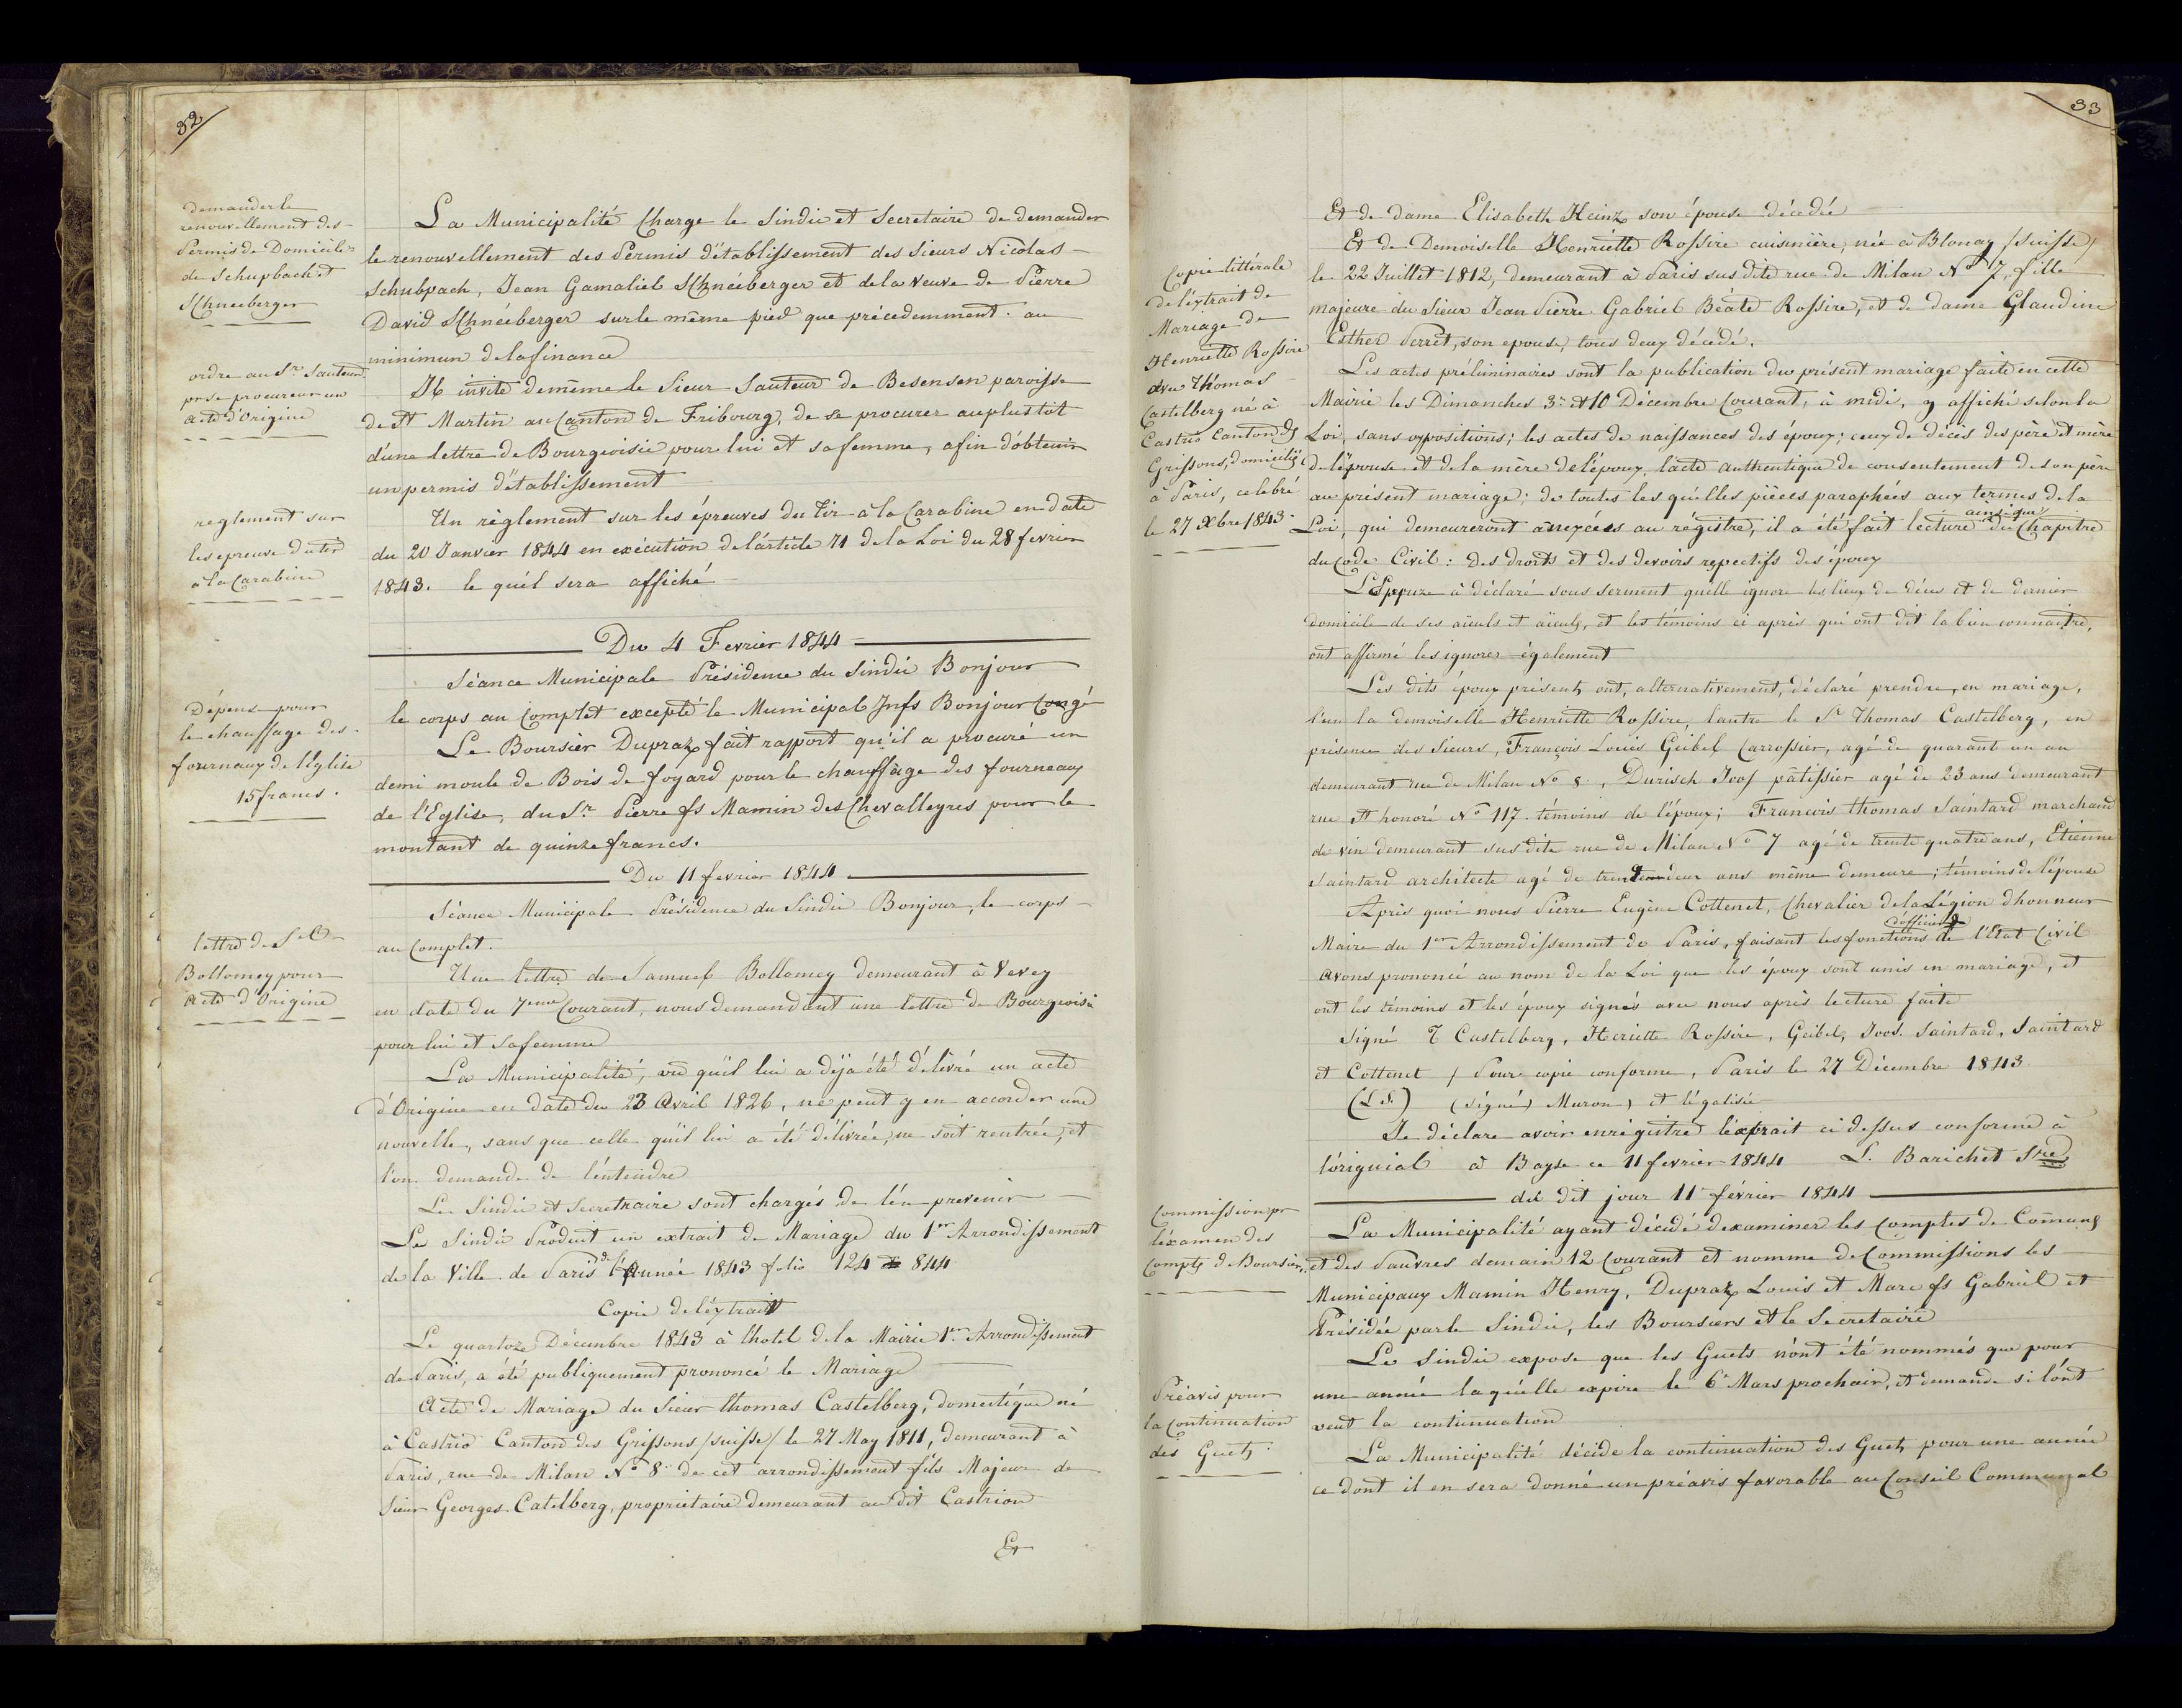 32
demander le
renouvellement des
Permis de Domicile
de Schupbach et
SChneeberger
La Municipalité Charge le Sindic et Secretaire de demander
le renouvellement des Permis d'établissement des Sieurs Nicolas
Schubpach, Jean Gamaliel SChneéberger et de la Veuve de Pierre
David SChneéberger sur le même pied que précedemment. au
minimun de la finance
ordre au Sr Sauteur
pr se procureur un
acte d'Origine
Il invite de même le Sieur Sauteur de Besensen paroisse
de St Martin au Canton de Fribourg, de se procurer au plustôt
d'une lettre de Bourgeoisie pour lui et sa femme, afin d'obtenir
un permis d'établissement
reglement sur
les epreuve du tir
à la Carabine
Un règlement sur les épreuves du Tir à la Carabine en date
du 20 Janvier 1844 en exécution de l'article 71 de la Loi du 28 fevrier
1843. le quél sera affiché
Du 4 Fevrier 1844
Séance Municipale Présidence du Sindic Bonjour
le corps au Complet excepté le Municipal Jnfs Bonjour Congé
Dépense pour
le chauffage des
fournaux de l'Eglise
15 francs.
Le Boursier Dupraz fait rapport qu'il a procuré un
demi moule de Bois de foyard pour le chauffage des fourneaux
de l'Eglise, du Sr Pierre fs Mamin des Chevalleyres pour le
montant de quinze francs.
Du 11 fevrier 1844
Séance Municipale Présidence du Sindic Bonjour, le corps
au Complet.
lettre de Sl
Bollomey pour
acte d'Origine
Une lettre de Samuel Bollomey demeurant à Vevey
en date du 7eme Courant, nous demandant une lettre de Bourgeoisie
pour lui et sa femme
La Municipalité, vu qu'il lui a déja été délivré un acte
d'Origine en date du 23 Avril 1826, ne peut y en accorder une
nouvelle, sans que celle qu'il lui a été délivrée, ne soit rentrée, et
l'on demande de l'entendre
Le Sindic et Secretraire sont chargés de l'én prevenir
Le Sindic Produit un extrait de Mariage du 1er Arrondissement
de la Ville de Paris de l'Année 1843 folio 124 844
Copie de l'éxtrait
Le quartoze Décembre 1843 à l'hotel de la Mairie 1er Arrondissement
de Paris, a été publiquement prononcé le Mariage
Acte de Mariage du Sieur thomas Castelberg, domestique né
à Castrio Canton des Grissons /Suisse/ le 27 May 1811, demeurant à
Paris, rue de Milan No 8 de cet arrondissement fils Majeur de
Sieur Georges Catelberg, proprietaire demeurant au dit Castrion
Et
33
Et de dame Elisabeth Heinz son épouse décédée
Copie littérale
de l'éxtrait de
Mariage de
Henriette Rossire
avec Thomas
Castelberg né à
Castrio Canton ds
Grissons, domicilié
à Paris, celebré
le 27 Xbre 1843.
Et de Demoiselle Henriette Rossire cuisinière, née à Blonay /Suisse/
le 22 Juillet 1812, demeurant à Paris sus dite rue de Milan No 7, fille
majeure du Sieur Jean Pierre Gabriel Béate Rossire, et de dame Glaudine
Esther Perret, son epouse, tous deux décédé.
Les actes préliminaires sont la publication du présent mariage faite en cette
Mairie les Dimanches 3 et 10 Décembre Courant, à midi, y affiché selon la
Loi, sans oppositions; les actes de naissances des époux; ceux de décès des père et mère
de l'épouse et de la mère de l'époux, l'acte authentique de consentement de son père
au présent mariage; de toutes les quélles pièces paraphées aux termes de la
Loi, qui demeureront annexées au régistre, il a été fait lecture ainsi que du Chapitre
du Code Civil: des droits et des devoirs repectifs des époux
L'Eppuze à déclaré sous serment quelle ignore les lieux de déces et de dernier
domicile de ses aïeuls et aïeuls, et les témoins ci après qui ont dit la bien connaitre,
ont affirmé les ignorer également
Les dits époux présents ont, alternativement, déclaré prendre, en mariage,
l'un la demoiselle Henriette Rossire, lautre le Sr Thomas Castelberg, en
présence des Sieurs, François Louis Geibel Carrossier, agé de quarant un an
demeurant rue de Milan No 8, Durisch Joos pâtissier agé de 23 ans demeurant
rue St honoré No 117. témoins de l'époux; Francois thomas Saintard marchand
de vin demeurant sus dite rue de Milan No 7 agé de trente quatre ans, Etienne
Saintard architecte agé de trente deux ans même demeure; témoins de l'épouse
Après quoi nous Pierre Eugène Cottenet, Chevalier de la Légion dhonneur
Maire du 1er Arrondissement de Paris, faisant les fonctions d'officier de l'Etat Civil
avons prononcé au nom de la Loi que les époux sont unis en mariage, et
ont les témoins et les époux signés avec nous après lecture faite
Signé T Castelberg, Heriette Rossire, Geibel, Joos. Saintard, Saintard
et Cottenet / Pour copie conforme, Paris le 27 Décembre 1843
(L.S.) (signé) Muron, et légalisée
Je déclare avoir enrégistré l'éxtrait ci dessus conforme à
l'óriguial à Bayse ce 11 fevrier 1844 L. Barichet Stre
du dit jour 11 février 1844
Commission pr
l'éxamen des
Compts de Boursiers
La Municipalité ayant décidé d'examiner les Comptes de Comune
et des Pauvres demain 12 Courant et nomme de Commissions les
Municipaux Mamin Henry, Dupraz Louis et Marc fs Gabriel et
Présidée par le Sindic, les Boursiers et le Secretaire
Préavis pour
la Continuation
des Guets.
Le Sindic expose que les Guets n'ónt été nommés que pour
une année laquélle expire le 6 Mars prochain, et demande si l'ónt
veut la continuation
La Municipalité décide la continuation des Guets pour une année
ce dont il en sera donné un préavis favorable au Conseil Communal